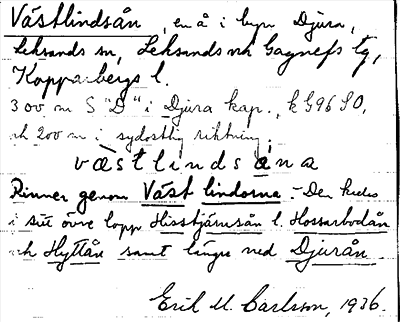 Västlindsån, en å i byn Djura,
Leksands sn, Leksands och Gagnefs tg,
Kopparbergs l.
300 m S "D" i Djura kap., k G96 SO,
och 200 m i sydostlig riktning.
västlindsåna
Rinner genom Väst lindorna. - Den kallas
i sitt övre lopp Hisstjärnsån l. Hossarbodån
och Hyttån samt längre ned Djurån.
Erik M. Carlsson, 1936.